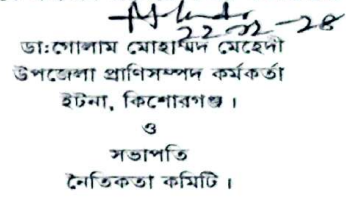 ডা:গোলাম মোহাম্মদ মেহেদী
উপজেলা প্রাণিসম্পদ কর্মকর্তা
ইটনা, কিশোরগঞ্জ।
ও
সভাপতি
নৈতিকতা কমিটি।